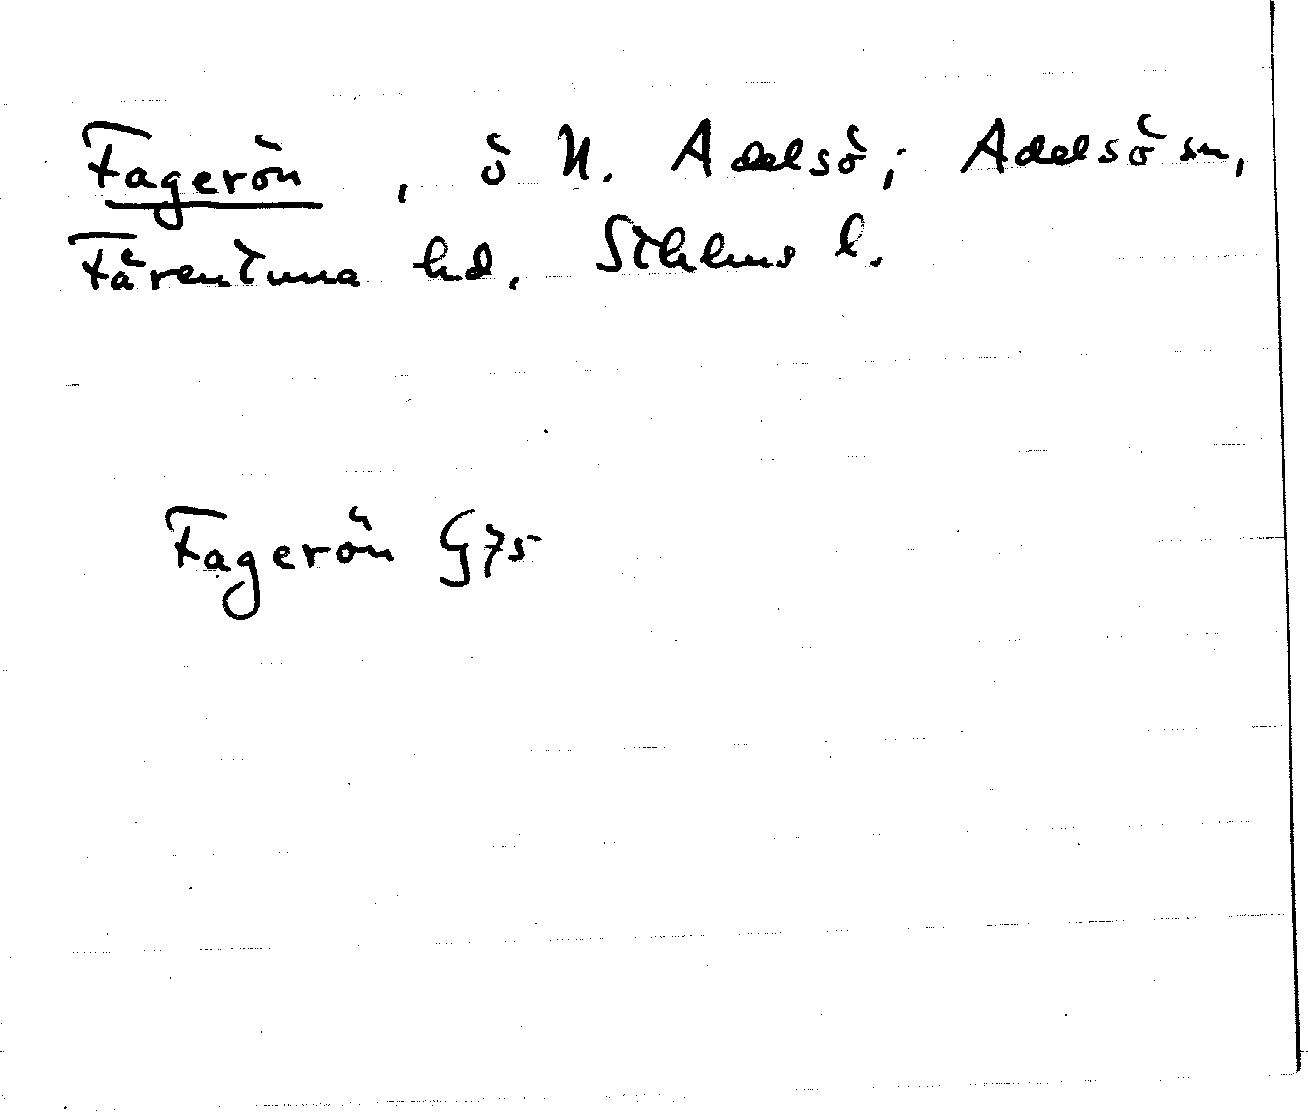 Fagerön, ö N. Adelsö; Adelsö sn,
Färentuna hd. Sthlms l.
Fagerön G75